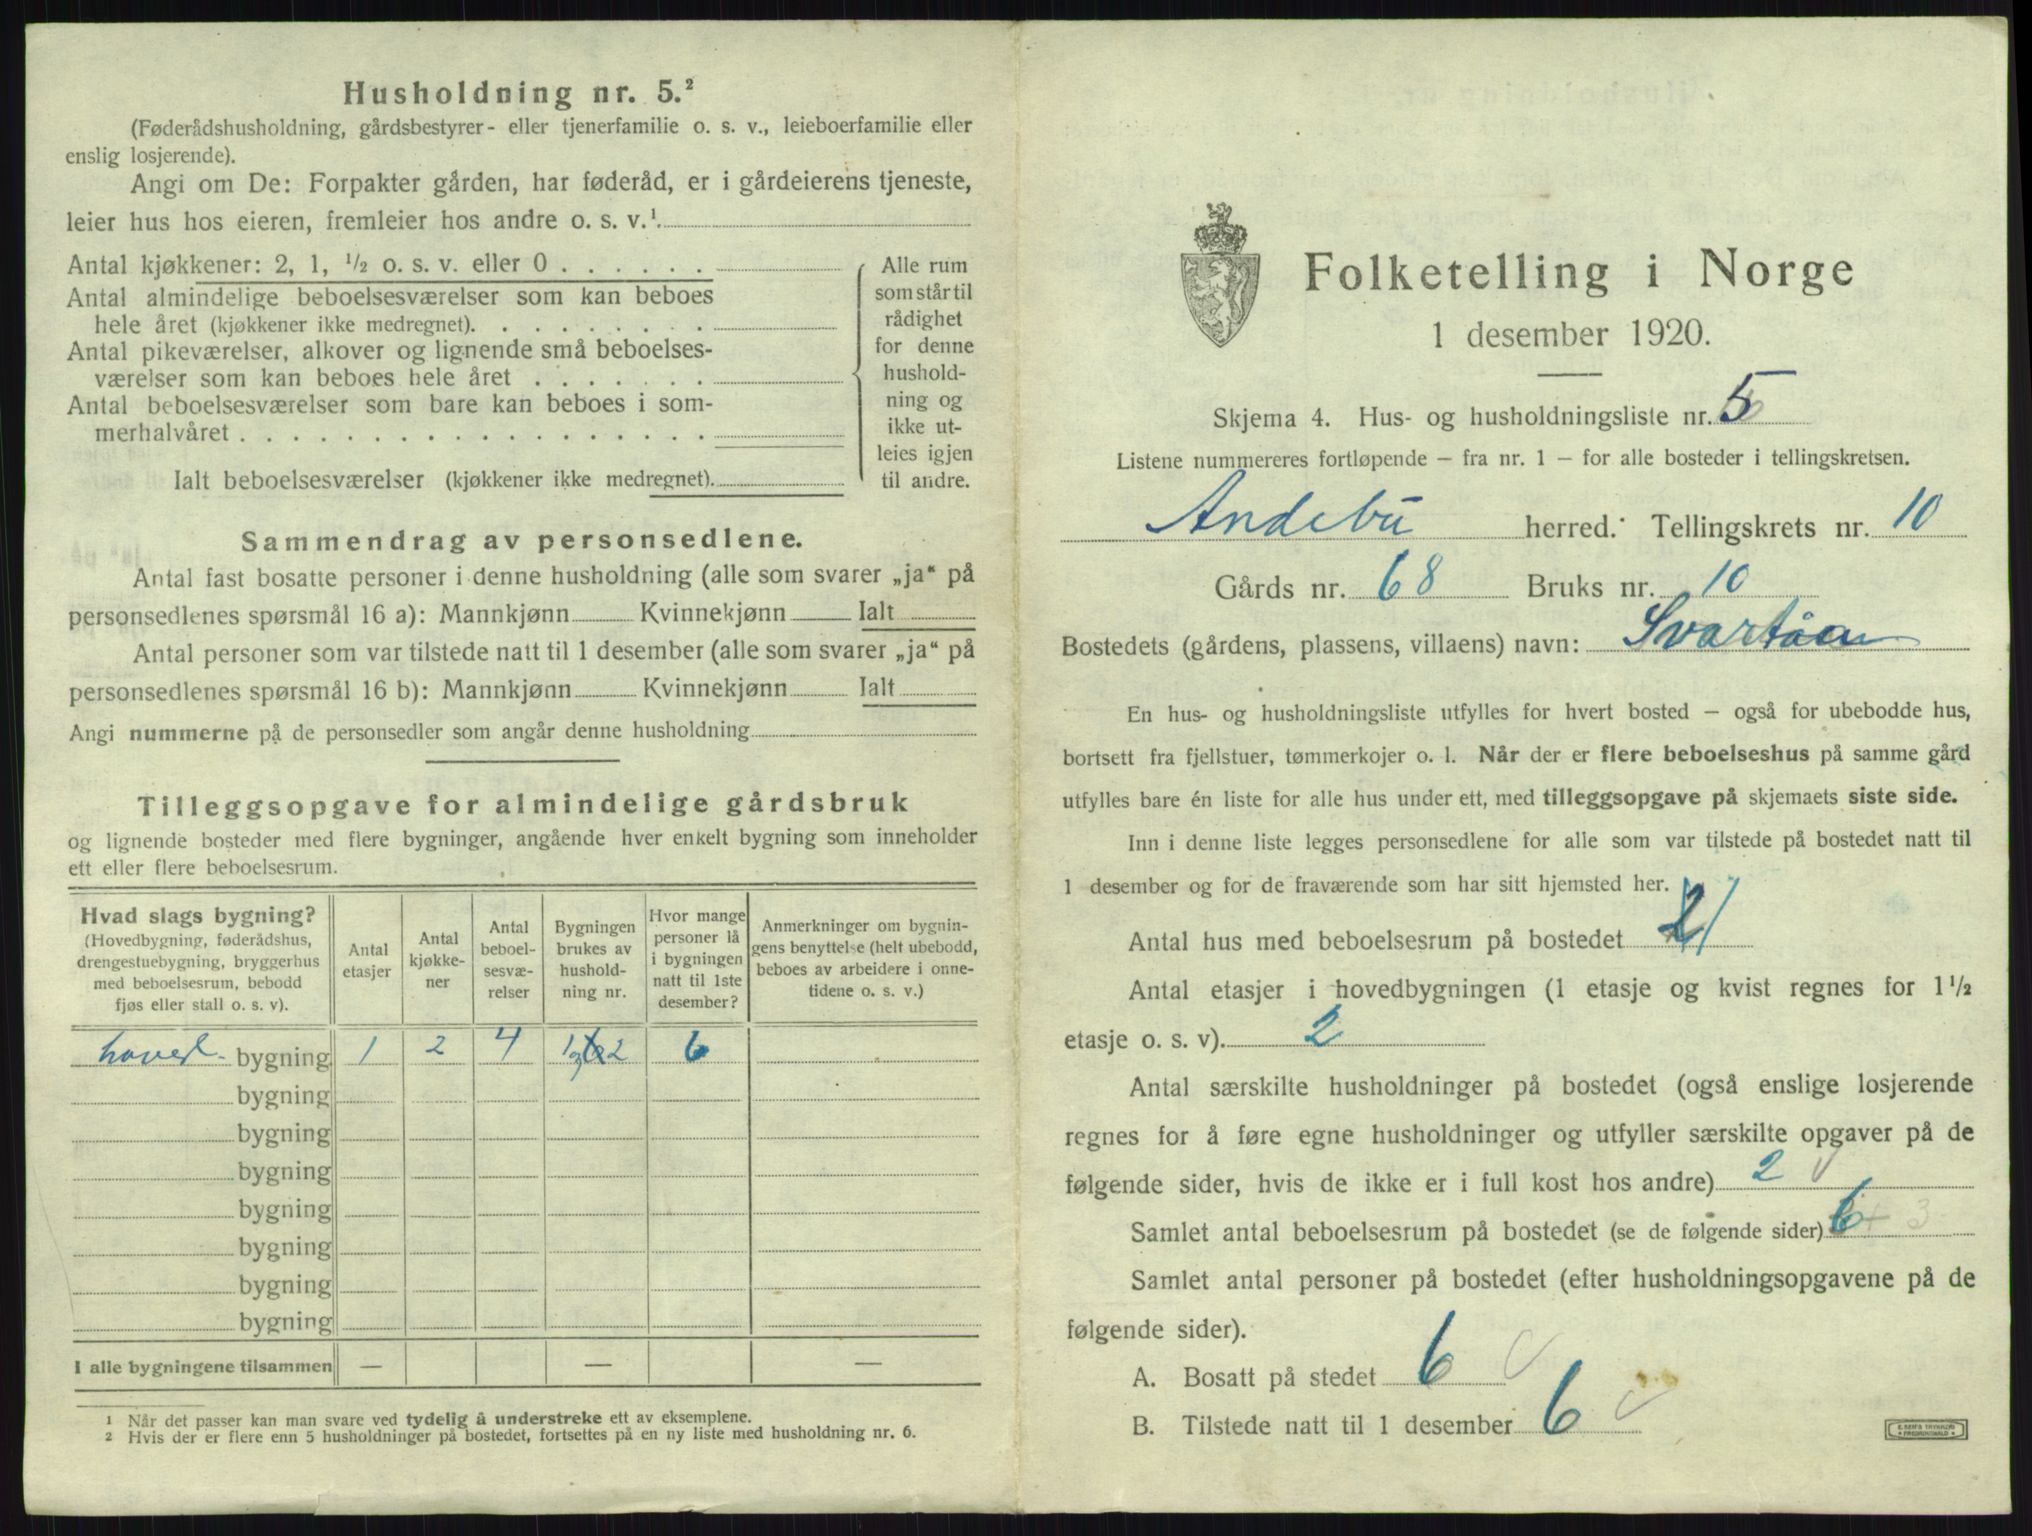 Husholdning nr. 5.²
(Føderådshusholdning, gårdsbestyrer- eller tjenerfamilie o. s. v., leieboerfamilie eller
enslig losjerende).
Angi om De: Forpakter gården, har føderåd, er i gårdeierens tjeneste,
leier hus hos eieren, fremleier hos andre o. s. v.¹
Antal kjøkkener: 2, 1, ½ o. s. v. eller 0 . . . . . .
Antal almindelige beboelsesværelser som kan beboes
hele året (kjøkkener ikke medregnet). . . . . . . . .
Antal pikeværelser, alkover og lignende små beboelses-
værelser som kan beboes hele året . . . . . . .
Antal beboelsesværelser som bare kan beboes i som-
merhalvåret . . . . . . . . . . . . . . . . . .
Ialt beboelsesværelser (kjøkkener ikke medregnet).
Alle rum
som står til
rådighet
for denne
hushold-
ning og
ikke ut-
leies igjen
til andre.
Sammendrag av personsedlene.
Antal fast bosatte personer i denne husholdning (alle som svarer „ja“ på
personsedlenes spørsmål 16 a): Mannkjønn Kvinnekjønn Ialt
Antal personer som var tilstede natt til 1 desember (alle som svarer „ja“ på
personsedlenes spørsmål 16 b): Mannkjønn Kvinnekjønn Ialt
Angi nummerne på de personsedler som angår denne husholdning
Tilleggsopgave for almindelige gårdsbruk
og lignende bosteder med flere bygninger, angående hver enkelt bygning som inneholder
ett eller flere beboelsesrum.
Hvad slags bygning?
(Hovedbygning, føderådshus,
drengestuebygning, bryggerhus
med beboelsesrum, bebodd
fjøs eller stall o. s. v).
Antal
etasjer
Antal
kjøkke-
ner
Antal
beboel-
sesvæ-
relser
Bygningen
brukes av
hushold-
ning nr.
Hvor mange
personer lå
i bygningen
natt til 1ste
desember?
Anmerkninger om bygnin-
gens benyttelse (helt ubebodd,
beboes av arbeidere i onne-
tidene o. s. v.)
hoved- bygning 1 2 4 1 2 6
bygning
bygning
bygning
bygning
bygning
bygning
bygning
I alle bygningene tilsammen — — —
1 Når det passer kan man svare ved tydelig å understreke ett av eksemplene.
2 Hvis der er flere enn 5 husholdninger på bostedet, fortsettes på en ny liste med husholdning nr. 6.
Folketelling i Norge
1 desember 1920.
Skjema 4. Hus- og husholdningsliste nr. 5
Listene nummereres fortløpende – fra nr. 1 – for alle bosteder i tellingskretsen.
Andebu herred. Tellingskrets nr. 10
Gårds nr. 68 Bruks nr. 10
Bostedets (gårdens, plassens, villaens) navn: Svartåa
En hus- og husholdningsliste utfylles for hvert bosted – også for ubebodde hus,
bortsett fra fjellstuer, tømmerkojer o. l. Når der er flere beboelseshus på samme gård
utfylles bare én liste for alle hus under ett, med tilleggsopgave på skjemaets siste side.
Inn i denne liste legges personsedlene for alle som var tilstede på bostedet natt til
1 desember og for de fraværende som har sitt hjemsted her.
Antal hus med beboelsesrum på bostedet 1
Antal etasjer i hovedbygningen (1 etasje og kvist regnes for 1½
etasje o. s. v). 2
Antal særskilte husholdninger på bostedet (også enslige losjerende
regnes for å føre egne husholdninger og utfyller særskilte opgaver på de
følgende sider, hvis de ikke er i full kost hos andre) 2
Samlet antal beboelsesrum på bostedet (se de følgende sider) 6
Samlet antal personer på bostedet (efter husholdningsopgavene på de
følgende sider).
A. Bosatt på stedet 6
B. Tilstede natt til 1 desember 6